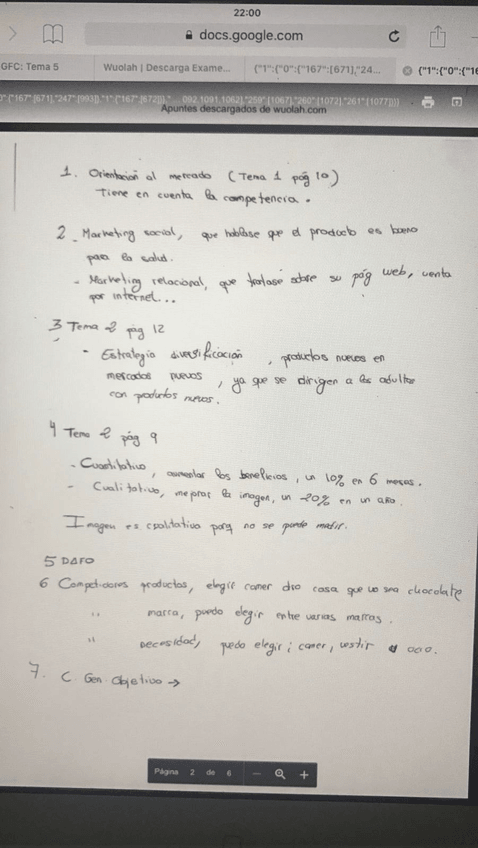 22:00
docs.google.com
GFC: Tema 5
Wuolah | Descarga Exame...
{"1":{"0":{"167":[671],"24...
{"1":{"0":{"16
Apuntes descargados de wuolah.com
1. Orientación al mercado (Tema 1 pág 10)
Tiene en cuenta la competencia.
2. Marketing social, que hablase que el producto es bueno
para la salud.
- Marketing relacional, que tratase sobre su pág web, venta
por internet...
3 Tema 2 pág 12
- Estrategia diversificación, productos nuevos en
mercados nuevos, ya que se dirigen a los adultos
con productos nuevos.
4 Tema 2 pág 9
- Cuantitativo, aumentar los beneficios, un 10% en 6 meses.
- Cualitativo, mejorar la imagen, un 20% en un año.
Imagen es cualitativa porq no se puede medir.
5 DAFO
6 Competidores productos, elegir comer otro cosa que no sea chocolate
" marca, puedo elegir entre varias marcas.
" necesidad, puedo elegir; comer, vestir
7. C. Gen. Objetivo →
Página 2 de 6